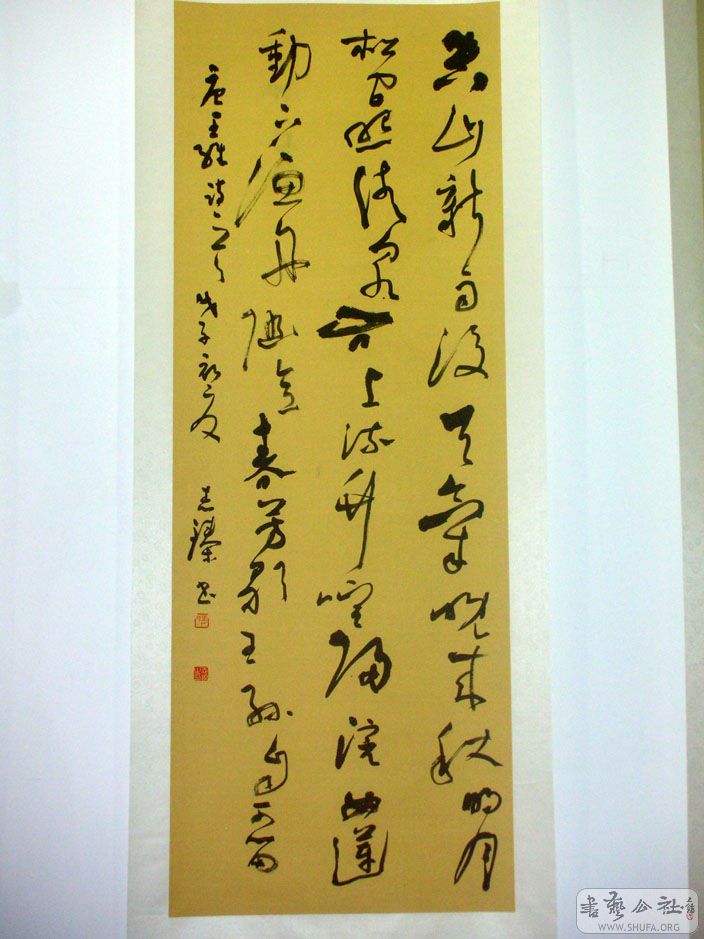 空山新雨後天氣晚来秋明月
松間照清泉石上流竹喧歸浣女蓮
動下漁舟随意春芳歇王孫自可留
唐王維詩一首 戊子初夏 志臻书
書藝公社
WWW.SHUFA.ORG